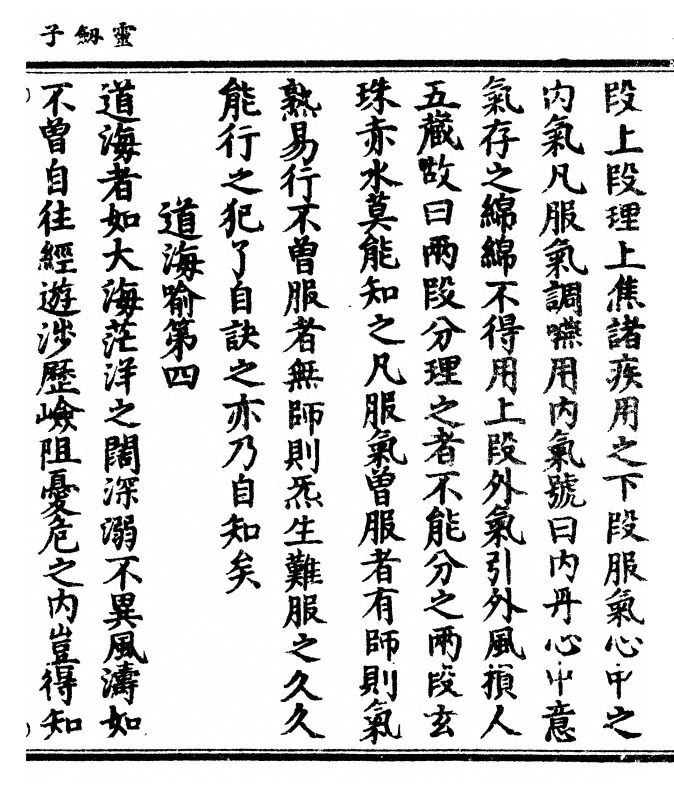 靈劒子
段上段理上焦諸疾用之下段服氣心中之
内氣凡服氣調嚥用内氣號曰内丹心中意
氣存之綿綿不得用上段外氣引外風損人
五藏故曰兩段分理之者不能分之兩段玄
珠赤水莫能知之凡服氣曾服者有師則氣
熟易行不曾服者無師則炁生難服之久久
能行之犯了自訣之亦乃自知矣
道海喻第四
道海者如大海茫洋之闊深溺不異風濤如
不曾自往經遊涉歷嶮阻憂危之内豈得知